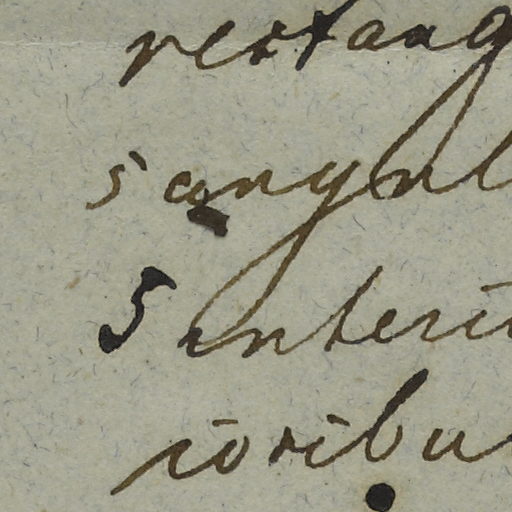 rectang
5 angul
5 interi
ioribu